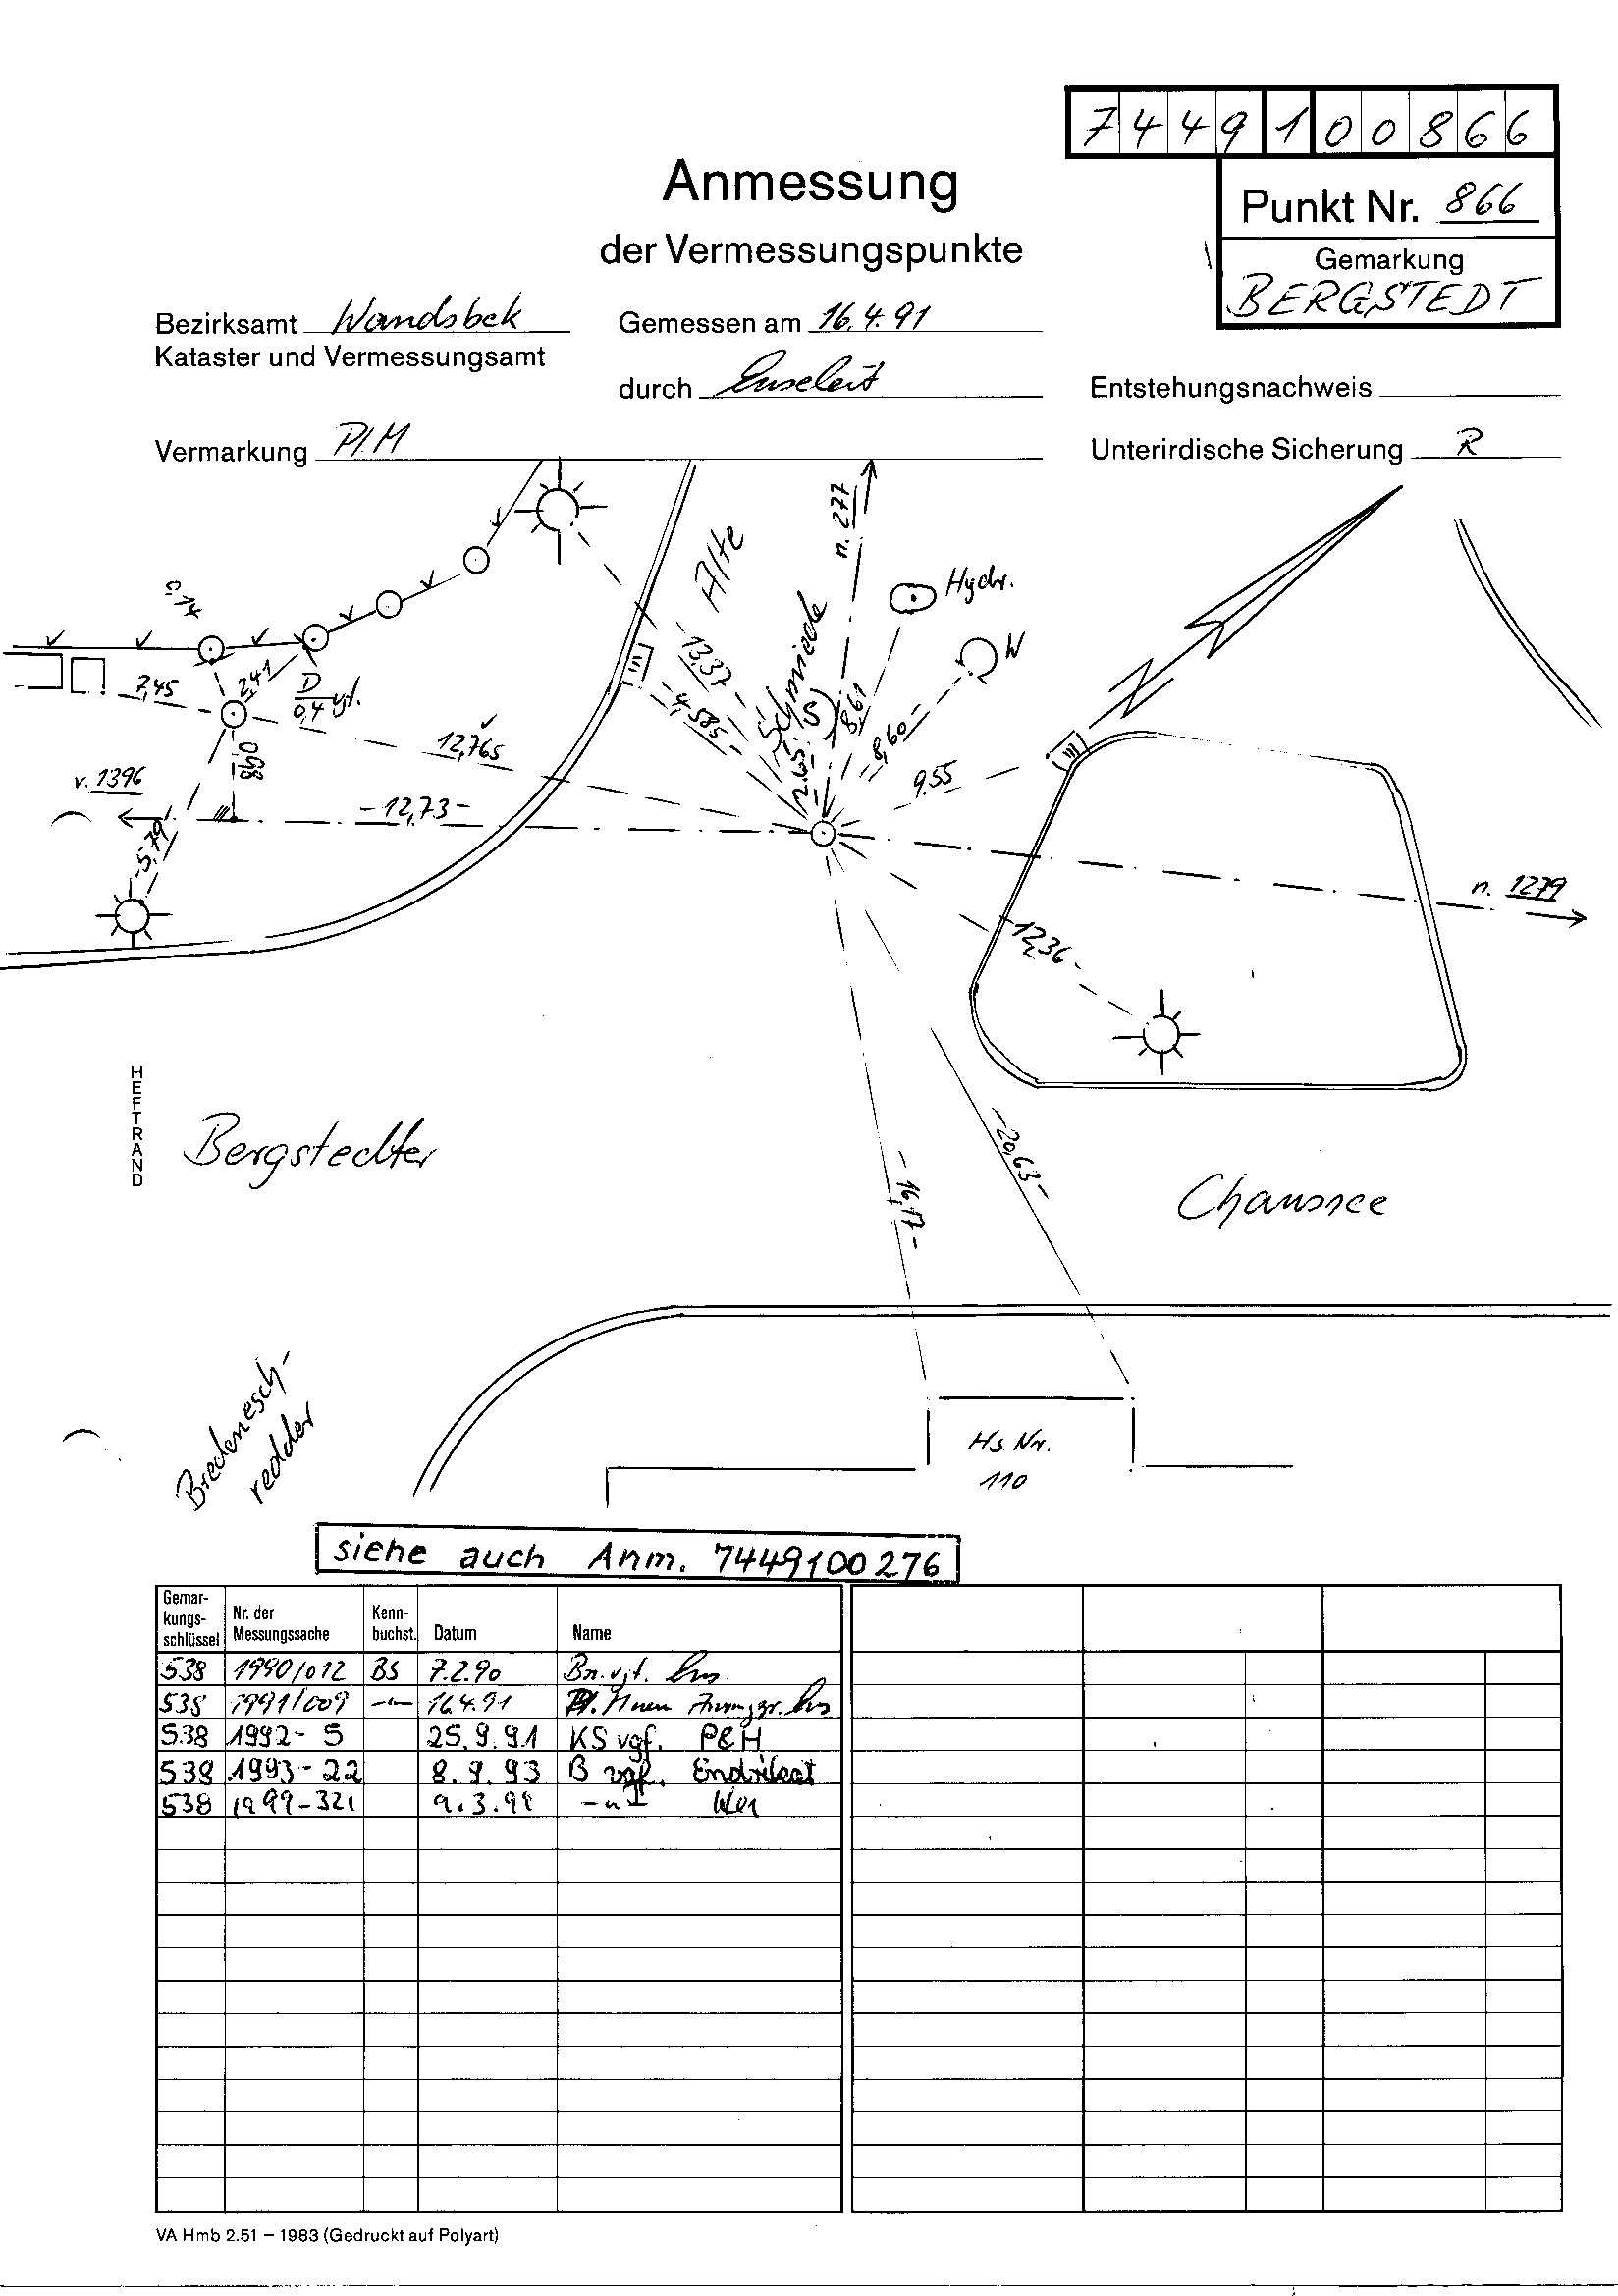 7449100866
Anmessung
der Vermessungspunkte
Punkt Nr. 866
Gemarkung
BERGSTEDT
Bezirksamt Wandsbek
Kataster und Vermessungsamt
Gemessen am 16.4.91
durch
Entstehungsnachweis
Vermarkung P/M
Unterirdische Sicherung R
n. 277
Alte
Schmiede
Hydr.
W
13,37
4,585
2.65
S
8,61
8,60
9,55
7,45
2,41
D
0,4
12,765
0,90
v. 1396
-12,73-
5,79
n. 1279
-12,36-
HEFTRAND
Bergstedter
-16,17-
-20,63-
Chaussee
Bredenesch-
redder
Hs. Nr.
110
siehe auch Anm. 7449100276
Gemar-
kungs-
schlüssel
Nr. der
Messungssache
Kenn-
buchst.
Datum
Name
538 1990/012 BS 7.2.90
538 1991/009 -"- 16.4.91
538 1992-5 25.9.91 KS vgf. P&H
538 1993-22 8.9.93 B vgf. Endrikat
538 1999-321 9.3.99 -"-
VA Hmb 2.51 – 1983 (Gedruckt auf Polyart)